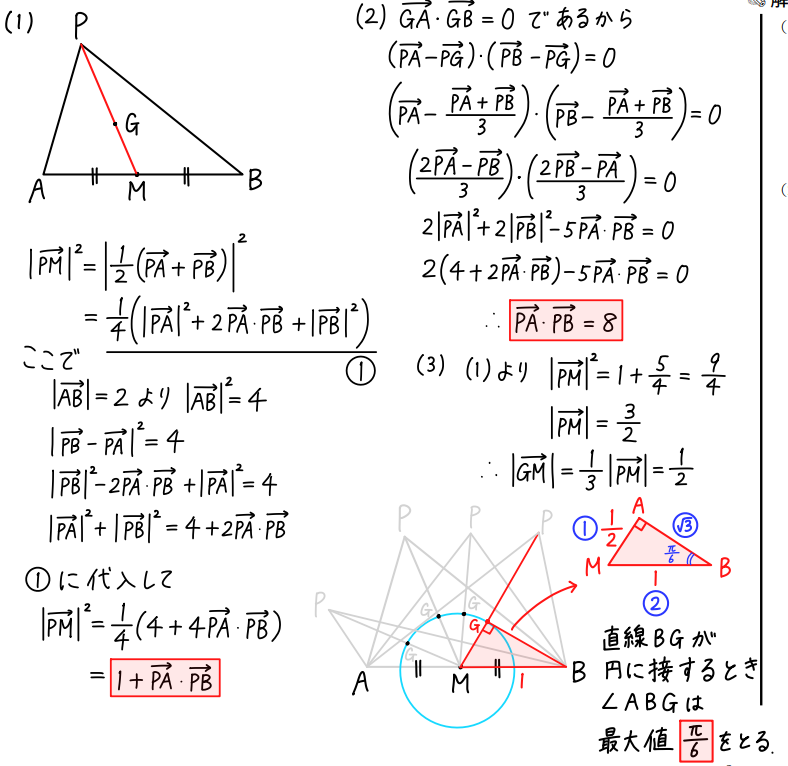 (1)
P
G
A M B
|PM→|² = |1/2(PA→ + PB→)|²
= 1/4(|PA→|² + 2PA→·PB→ + |PB→|²)
①
ここで
|AB→| = 2 より |AB→|² = 4
|PB→ - PA→|² = 4
|PB→|² - 2PA→·PB→ + |PA→|² = 4
|PA→|² + |PB→|² = 4 + 2PA→·PB→
①に代入して
|PM→|² = 1/4(4 + 4PA→·PB→)
= 1 + PA→·PB→
(2) GA→·GB→ = 0 であるから
(PA→ - PG→)·(PB→ - PG→) = 0
(PA→ - (PA→ + PB→)/3)·(PB→ - (PA→ + PB→)/3) = 0
((2PA→ - PB→)/3)·((2PB→ - PA→)/3) = 0
2|PA→|² + 2|PB→|² - 5PA→·PB→ = 0
2(4 + 2PA→·PB→) - 5PA→·PB→ = 0
∴ PA→·PB→ = 8
(3) (1)より |PM→|² = 1 + 5/4 = 9/4
|PM→| = 3/2
∴ |GM→| = 1/3|PM→| = 1/2
P P P P
G G G G
A M 1 B
A
① 1/2 √3
M π/6 B
1
②
直線BGが
円に接するとき
∠ABGは
最大値 π/6 をとる.